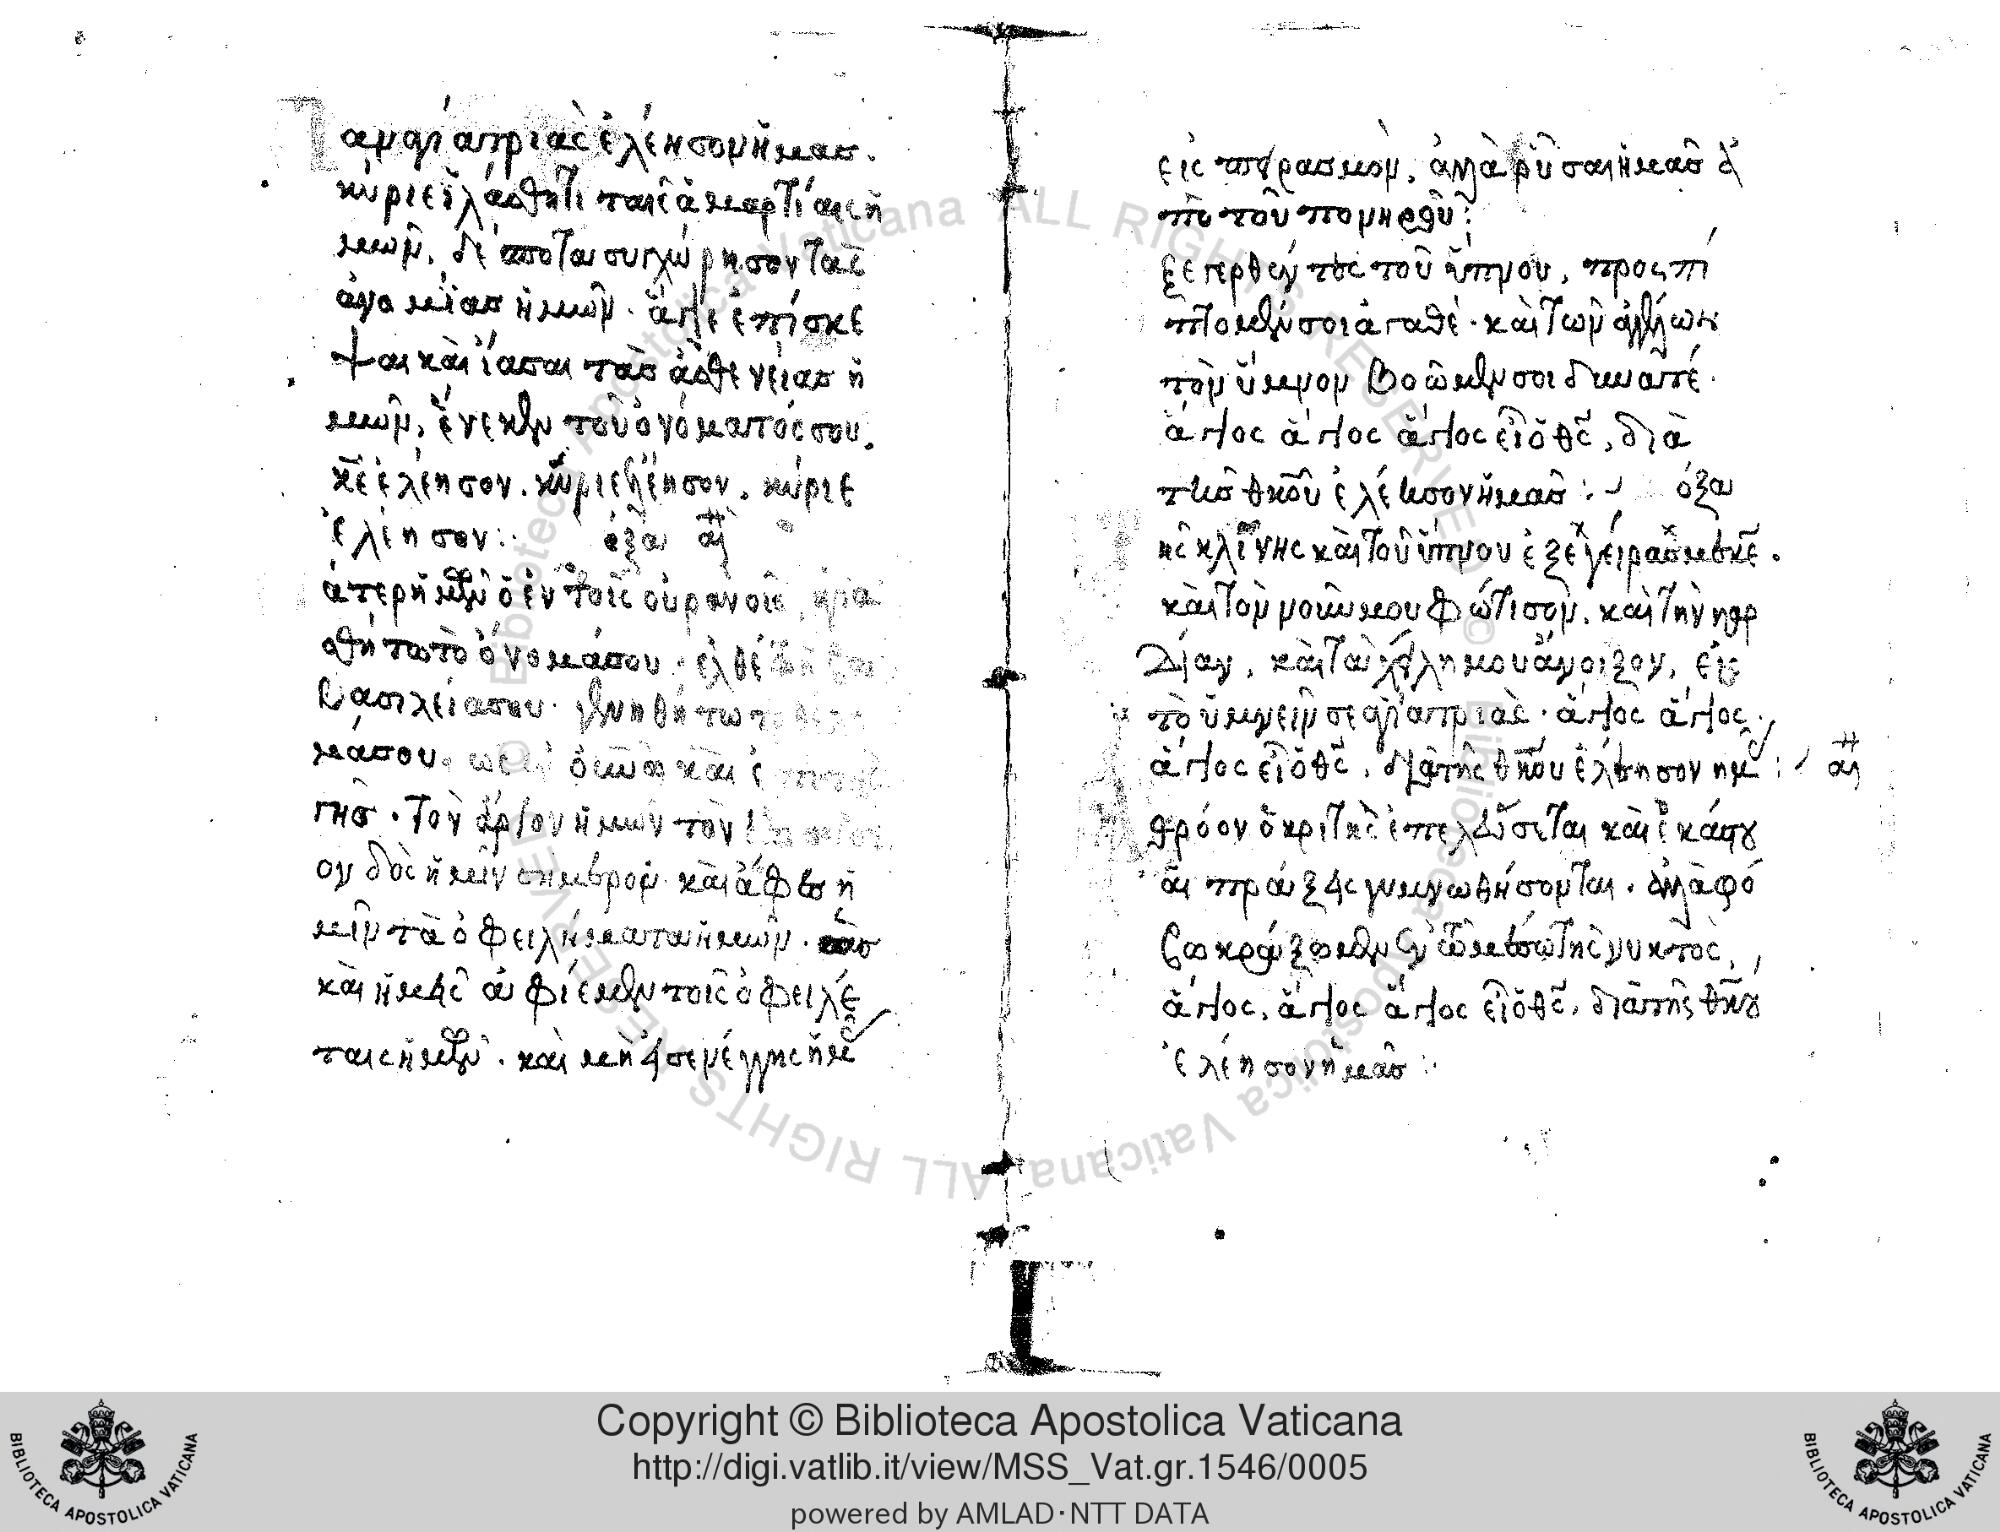 Παναγία τριὰς ἐλέησον ἡμας.
κύριε ἱλάσθητι ταῖς ἁμαρτίαις ἡ
μῶν. δέσποτα συγχώρησον τὰς
ἀνομίας ἡμῶν. ἅγιε ἐπίσκε
ψαι καὶ ἴασαι τὰς ἀσθενείας ἡ
μῶν, ἕνεκεν τοῦ ὀνόματός σου.
κε ἐλέησον. κύριε ἐλέησον. κύριε
ἐλέησον: όξα αὶ
άτερ ἡμῶν ὁ ἐν τοῖς οὐρανοῖς, ἁγια
σθήτω τὸ ὄνομά σου. ἐλθέτω ἡ
βασιλεία σου. γενηθήτω τὸ θέλη
μά σου. ὡς ἐν οὐνῶ καὶ ἐπὶ τῆς
γῆς. Τὸν ἄρτον ἡμῶν τὸν ἐπιούσι
ον δὸς ἡμῖν σήμερον. καὶ ἄφες ἡ
μῖν τὰ ὀφειλήματα ἡμῶν. ὡς
καὶ ἡμεῖς ἀφίεμεν τοῖς ὀφειλέ
ταις ἡμῶν. καὶ μὴ εἰσενέγκης ἡμᾶς
εἰς πειρασμόν. ἀλλὰ ρῦσαι ἡμᾶς ἀ
πὸ τοῦ πονηροῦ:
ξεγερθέντες τοῦ ὕπνου, προσπί
πτομέν σοι ἀγαθέ. καὶ τῶν ἀγγέλων
τὸν ὕμνον βοῶμέν σοι δυνατέ.
ἅγιος ἅγιος ἅγιος εἶ ὁ θς, διὰ
τῆς θκου ἐλέησον ἡμᾶς: όξα
ῆς κλίνης καὶ τοῦ ὕπνου ἐξεγείρας με κε.
καὶ τὸν νοῦν μου φώτισον. καὶ τὴν καρ
δίαν, καὶ τὰ χείλη μου ἄνοιξον, εἰς
τὸ ὑμνεῖν σε ἁγία τριὰς. ἅγιος ἅγιος
ἅγιος εἶ ὁ θς, διὰ τῆς θκου ἐλέησον ημᾶς: αὶ
θρόον ὁ κριτὴς ἐπελεύσεται καὶ ἑκάστου
αἱ πράξεις γυμνωθήσονται. ἀλλὰ φό
βω κράξωμεν ἐν τῶ μέσω τῆς νυκτὸς,
ἅγιος, ἅγιος ἅγιος εἶ ὁ θς, διὰ τῆς θκου
ἐλέησον ἡμᾶς:
Copyright © Biblioteca Apostolica Vaticana
http://digi.vatlib.it/view/MSS_Vat.gr.1546/0005
powered by AMLAD·NTT DATA
BIBLIOTECA APOSTOLICA VATICANA
BIBLIOTECA APOSTOLICA VATICANA
© Biblioteca Apostolica Vaticana ALL RIGHTS RESERVED
© Biblioteca Apostolica Vaticana ALL RIGHTS RESERVED